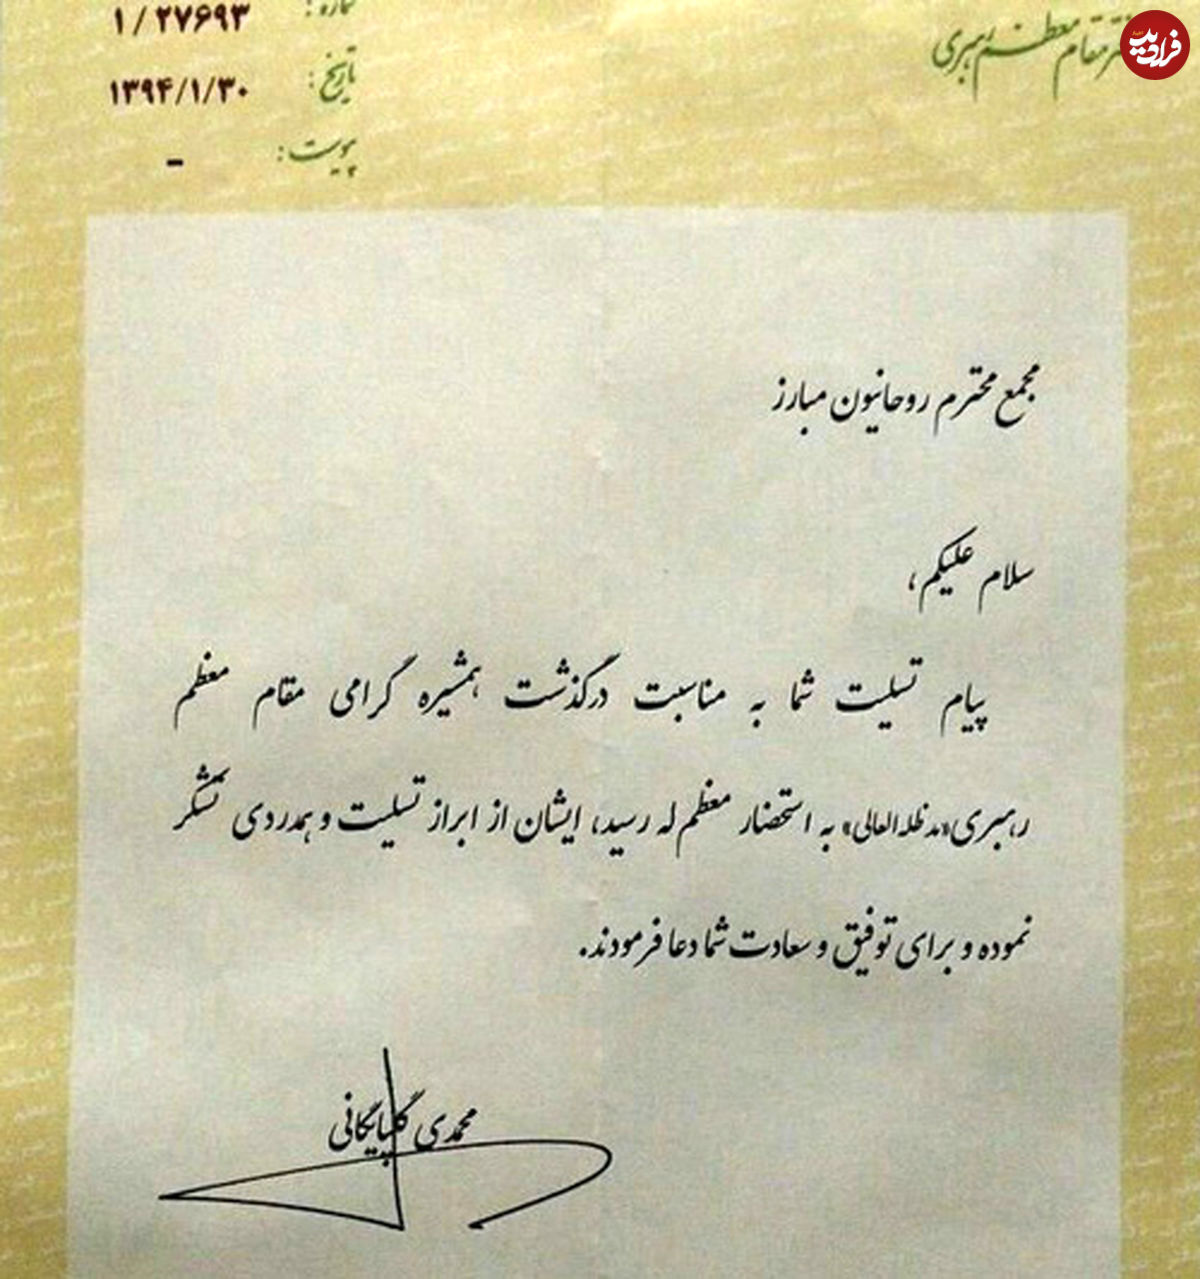 فرادید
دفتر مقام معظم رهبری
شماره : ۱ / ۲۷۶۹۳
تاریخ : ۱۳۹۴/۱/۳۰
پیوست : -
مجمع محترم روحانیون مبارز
سلام علیکم ،
پیام تسلیت شما به مناسبت درگذشت همشیره گرامی مقام معظم
رهبری «مدظله العالی» به استحضار معظم له رسید، ایشان از ابراز تسلیت و همدردی تشکر
نموده و برای توفیق و سعادت شما دعا فرمودند.
محمدی گلپایگانی